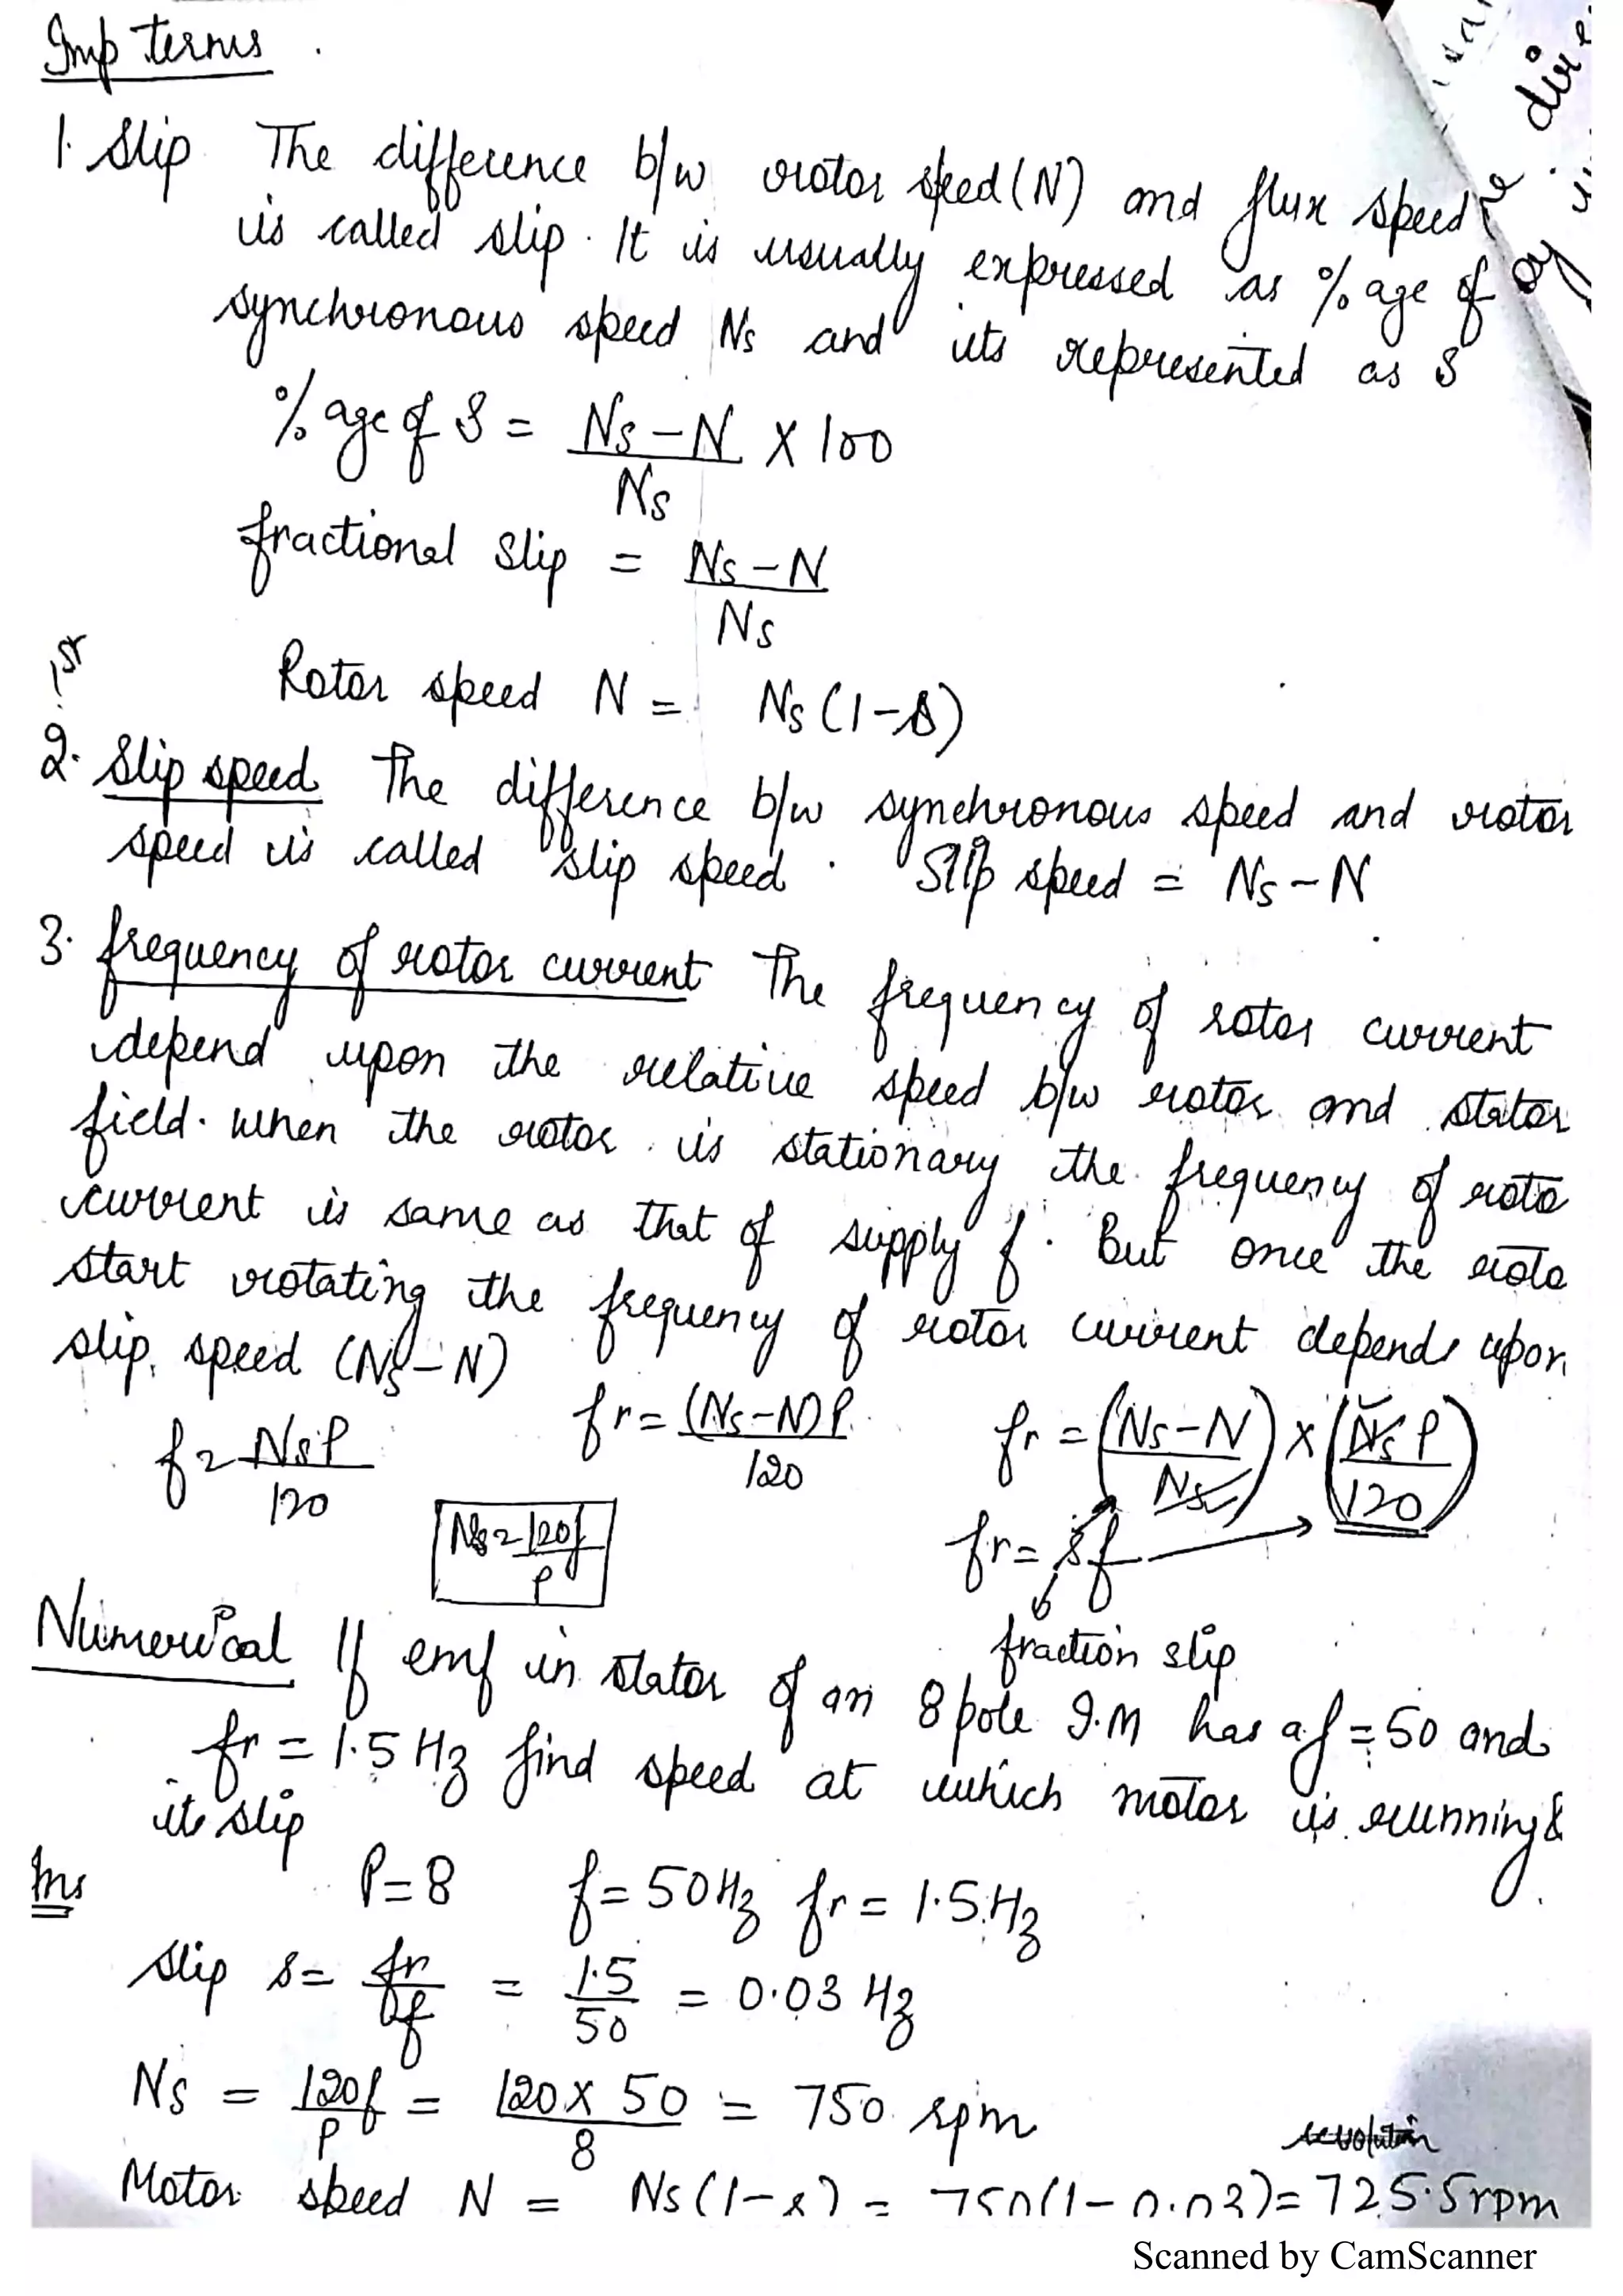 Imp terms
1. Slip The difference b/w rotor speed (N) and flux speed
is called slip. It is usually expressed as % age of
synchronous speed Ns and its represented as S
% age of S = Ns - N / Ns X 100
fractional slip = Ns - N / Ns
Rotor speed N = Ns (1-s)
2. Slip speed The difference b/w synchronous speed and rotor
speed is called slip speed. Slip speed = Ns - N
3. frequency of rotor current The frequency of rotor current
depend upon the relative speed b/w rotor and stator
field. when the rotor is stationary the frequency of roto
current is same as that of supply f. But once the roto
start rotating the frequency of rotor current depends upon
slip speed (Ns - N)
f = NsP / 120 fr = (Ns-N)P / 120 fr = (Ns-N / Ns) x (Ns P / 120)
Ns = 120f / P fr = sf
fraction slip
Numerical If emf in stator of an 8 pole I.M has a f = 50 and
fr = 1.5 Hz find speed at which motor is running &
its slip
Ans P=8 f = 50Hz fr = 1.5Hz
slip s = fr / f = 1.5 / 50 = 0.03 Hz
Ns = 120f / P = 120 x 50 / 8 = 750 rpm
revolution
Motor speed N = Ns (1-s) = 750(1-0.03) = 725.5rpm
Scanned by CamScanner